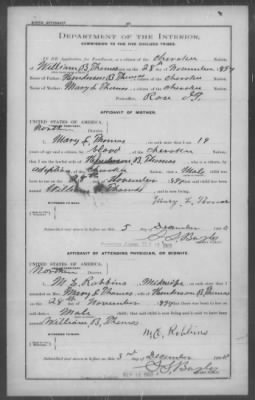 BIRTH AFFIDAVIT.
DEPARTMENT OF THE INTERIOR,
COMMISSION TO THE FIVE CIVILIZED TRIBES.
IN RE Application for Enrollment, as a citizen of the Cherokee Nation,
of William B. Thomas, born on the 28th day of November, 189
Name of Father: Henderson B. Thomas a citizen of the Cherokee Nation.
Name of Mother: Mary L. Thomas a citizen of the Cherokee Nation.
Postoffice, Rose I.T.
AFFIDAVIT OF MOTHER.
UNITED STATES OF AMERICA,
North District.
I, Mary L. Thomas, on oath state that I am 19
years of age and a citizen, by blood, of the Cherokee Nation;
that I am the lawful wife of Henderson B. Thomas, who is a citizen, by
adoption of the Cherokee Nation; that a Male child was
born to me on the 28th day of November, 189 that said child has been
named William B. Thomas, and is now living.
Mary L. Thomas
WITNESSES TO MARK:
Subscribed and sworn to before me this 5 day of December
AFFIDAVIT OF ATTENDING PHYSICIAN, OR MIDWIFE.
UNITED STATES OF AMERICA,
Northern District.
I, M. E. Robbins, a Midwife, on oath state that I
attended on Mrs. Mary L. Thomas, wife of Henderson B. Thomas
on the 28th day of November, 189 that there was born to her on said
date a Male child; that said child is now living and is said to have been named
William B. Thomas
M. E. Robbins
WITNESSES TO MARK:
Subscribed and sworn to before me this 3rd day of December